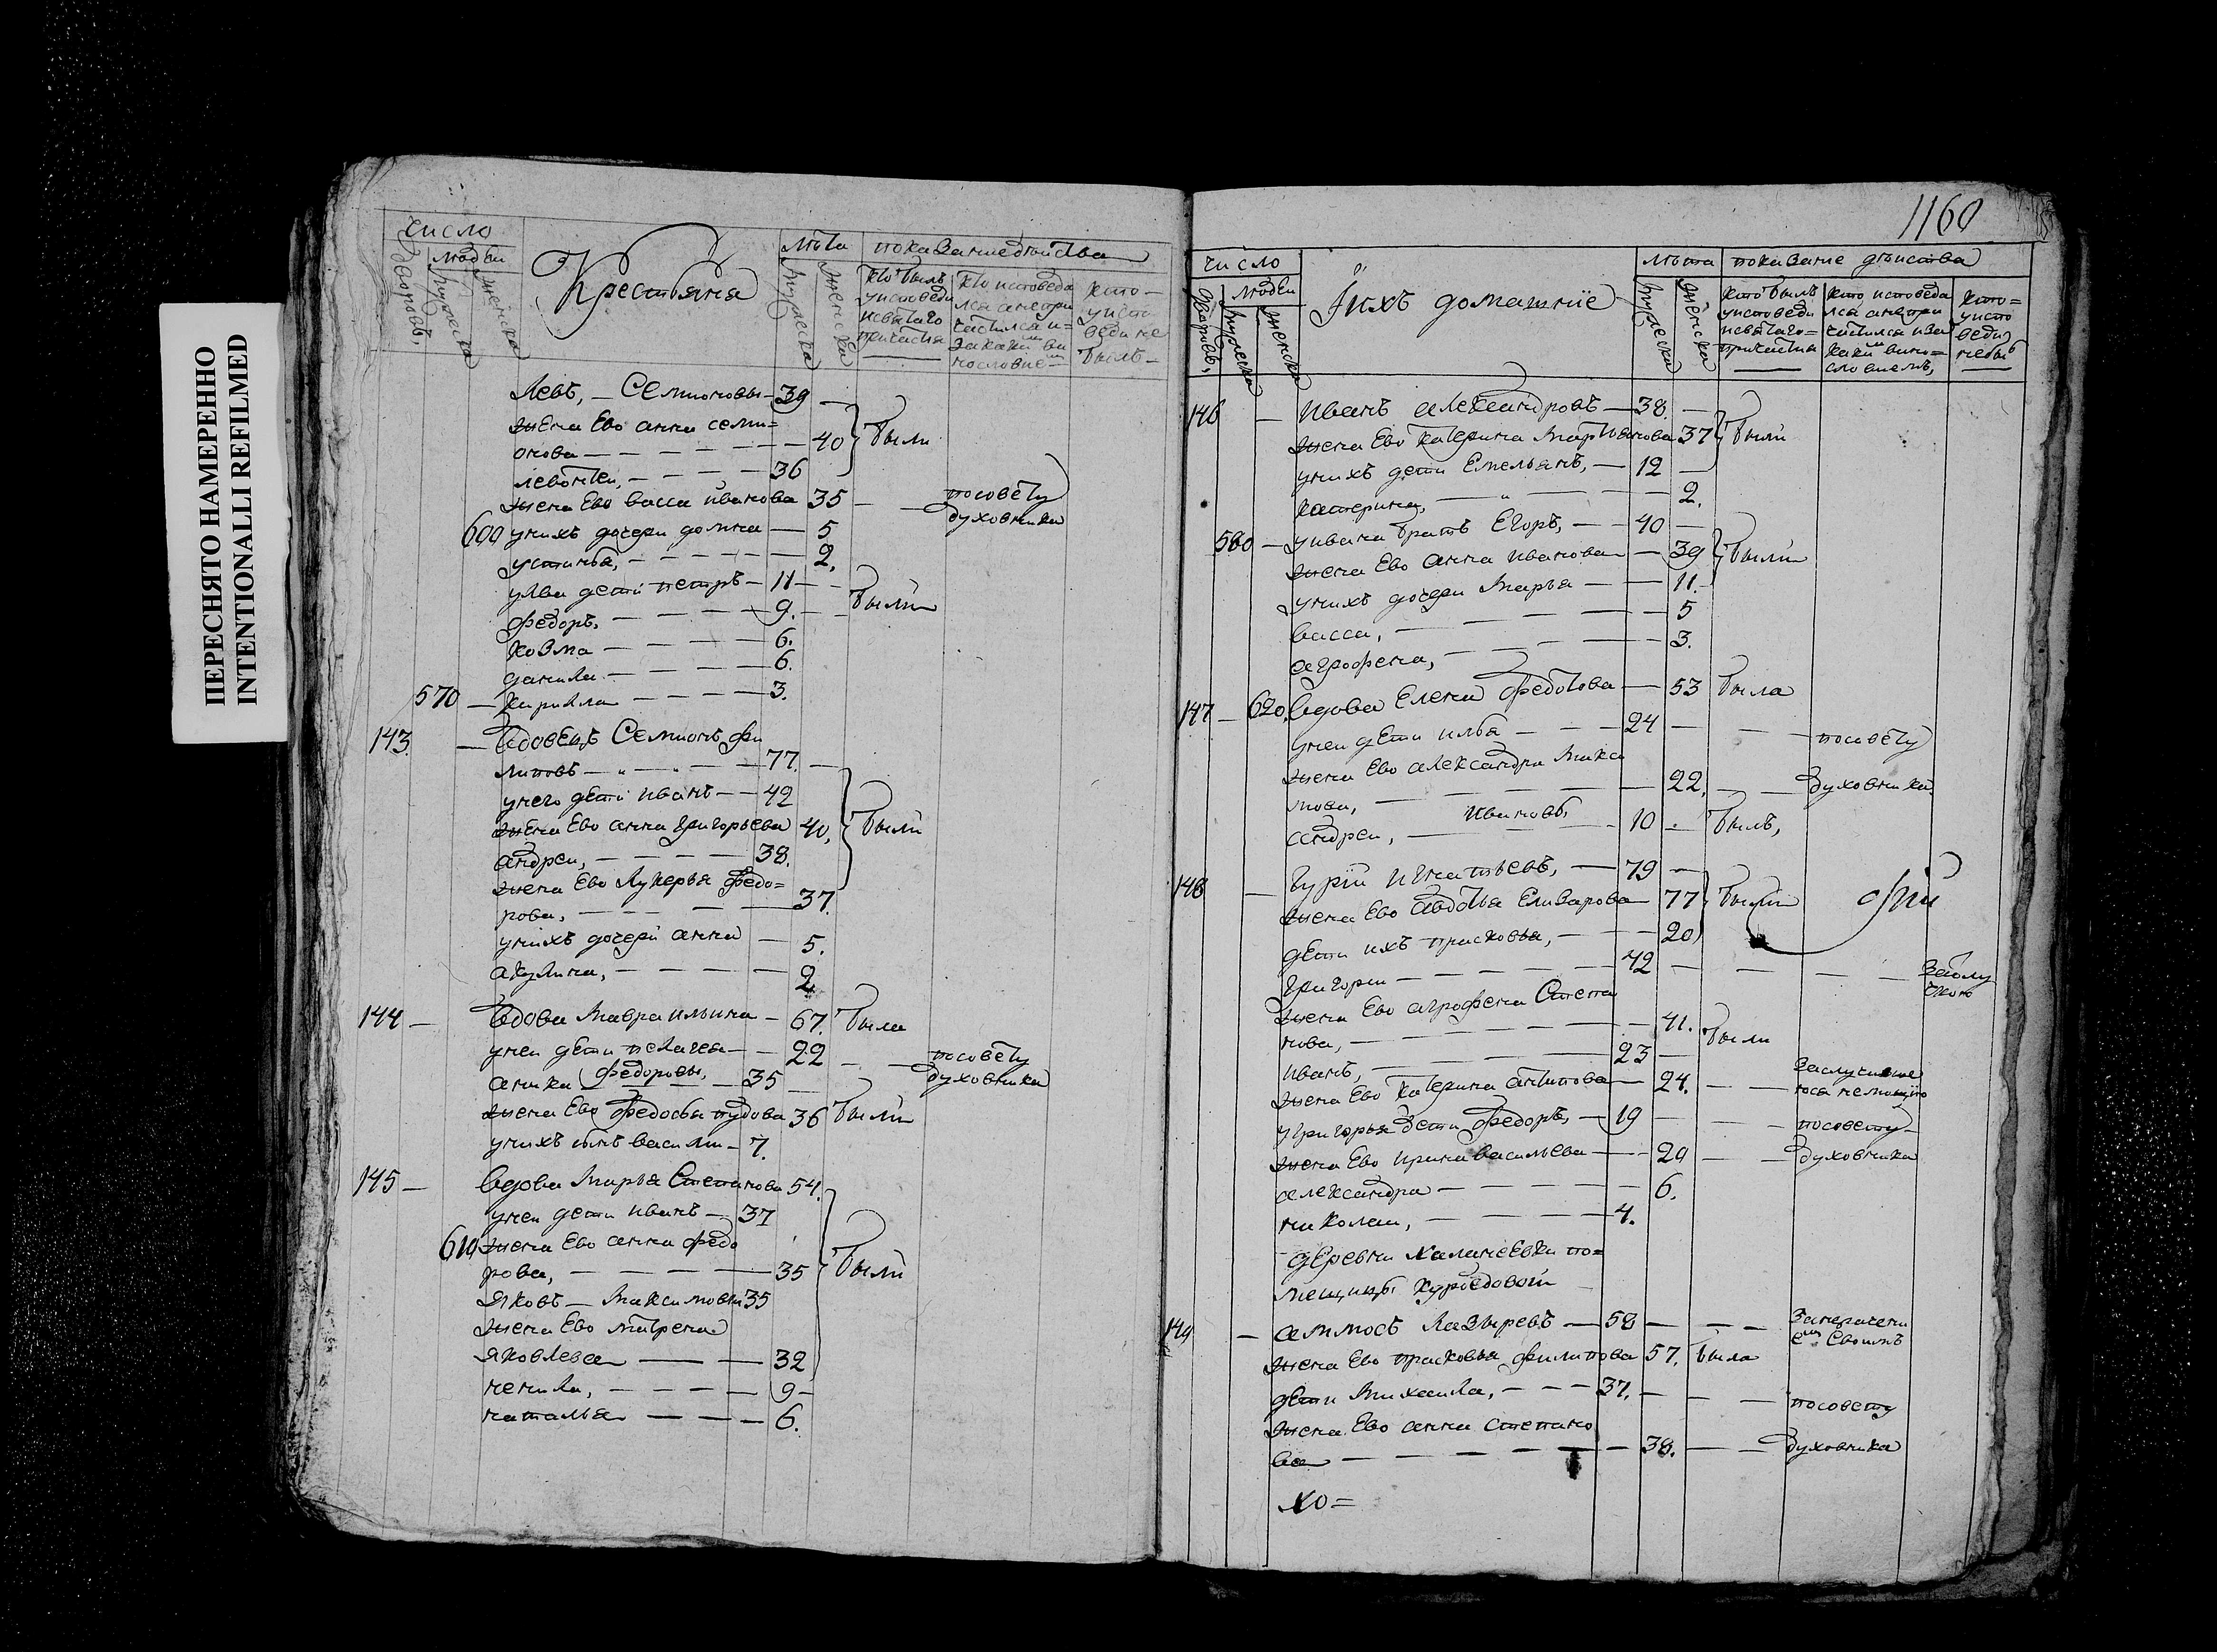 ПЕРЕСНЯТО НАМЕРЕННО
INTENTIONALLI REFILMED
число
людеи
дворовъ,
мужеска
женска
Крестьяня
лѣта
мужеска
женска
показание дѣиства
кто былъ
уисповеди
исвѣтаго
причастия
кто исповеда
лса анепри
частилса и=
закакимъ ви
нословие
кто—
уиспо
веди не
былъ—
Левъ, — Семионовы — 39 —
жена Ево анна семи=
онова — 40 были
левонтеи, — 36
жена Ево васса иванова 35 — посовету
духовника
600 унихъ дочери домна — 5
устинья, — 2.
ульва дети петръ — 11 —
федоръ. — 9. — были
козма — 6.
данила — 6.
570 — кирилла — 3.
143. — вдовецъ Семионъ фи
липовъ — 77. —
унего дети иванъ — 42
жена Ево анна григорьева 40, были
андреи, — 38.
жена Ево Лукерья Федо=
рова, — 37.
унихъ дочери анна — 5.
акулина, — 2.
144 — вдова мавра ильина — 67. была
унеи дети пелагея — 22 — посовету
духовника
аника федоровы, 35 —
жена Ево федосья пудова 36 были
унихъ сынъ василии — 7.
145 — вдова марья Степанова 54.
унеи дети иванъ — 37
610 жена Ево анна федо
рова, — 35 были
Яковъ — максимовы 35
жена Ево матрена
Яковлева — 32
ненила, — 9 —
наталья — 6.
1160
число
людеи
дворовъ,
мужеска
женска
Iихъ домашнïе
лѣта
мужеска
женска
показание дѣиства
кто былъ
уисповеди
исвѣтаго=
причастия
кто исповеда
лса анепри
частилса иза
какимъ вино=
словиемъ,
кто=
уиспо
веди
небылъ
146 — иванъ александровъ — 38. —
жена Ево катерина мартьянова 37 были
унихъ дети Емельянъ, — 12 —
катерина, — 2.
580 — уивана братъ Егоръ, — 40 —
жена Ево анна иванова — 39 были
унихъ дочери марья — 11.
васса, — 5
аграфена, — 3.
147 — 620. вдова Елена федотова — 53 была
унеи дети илья — 24 — посовету
жена Ево александра мака
рова, — 22. — духовника
андреи, — ивановы, 10 — былъ,
148 — гурïи игнатьевъ, — 79 —
жена Ево авдотья Елизарова — 77 были
дети ихъ прасковья, — 20
григореи — 42 — заболу
жена Ево аграфена Степа
нова, — 41. были
иванъ, — 23 —
жена Ево катерина антипова — 24. —
угригорья дети федоръ, — 19 — посовету
жена Ево ирина васильева — 20 — духовника
александра — 6.
николаи, — 4.
деревни
мещицы куроедовои
149 — аммосъ лазыревъ — 58 —
жена Ево прасковья филипова 57. была
дети михаила, — 37. — посовету
жена Ево анна степано
ва — 38. — духовника